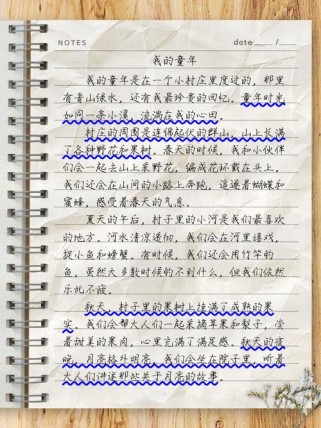 NOTES
date ___ /
我的童年
我的童年是在一个小村庄里度过的，那里
有青山绿水，还有我最珍贵的回忆。童年时光
如同一条小溪，流淌在我的心田。
村庄的周围是连绵起伏的群山，山上长满
了各种野花和果树。春天的时候，我和小伙伴
们会一起去山上采野花，编成花环戴在头上。
我们还会在山间的小路上奔跑，追逐着蝴蝶和
蜜蜂，感受着春天的气息。
夏天的午后，村子里的小河是我们最喜欢
的地方。河水清凉透彻，我们会在河里嬉戏，
捉小鱼和螃蟹。有时候，我们还会用竹竿钓
鱼，虽然大多数时候钓不到什么，但我们依然
乐此不疲。
秋天，村子里的果树上挂满了成熟的果
实。我们会帮大人们一起采摘苹果和梨子，尝
着甜美的果肉，心里充满了满足感。秋天的夜
晚，月亮格外明亮，我们会坐在院子里，听着
大人们讲述那些关于月亮的故事。